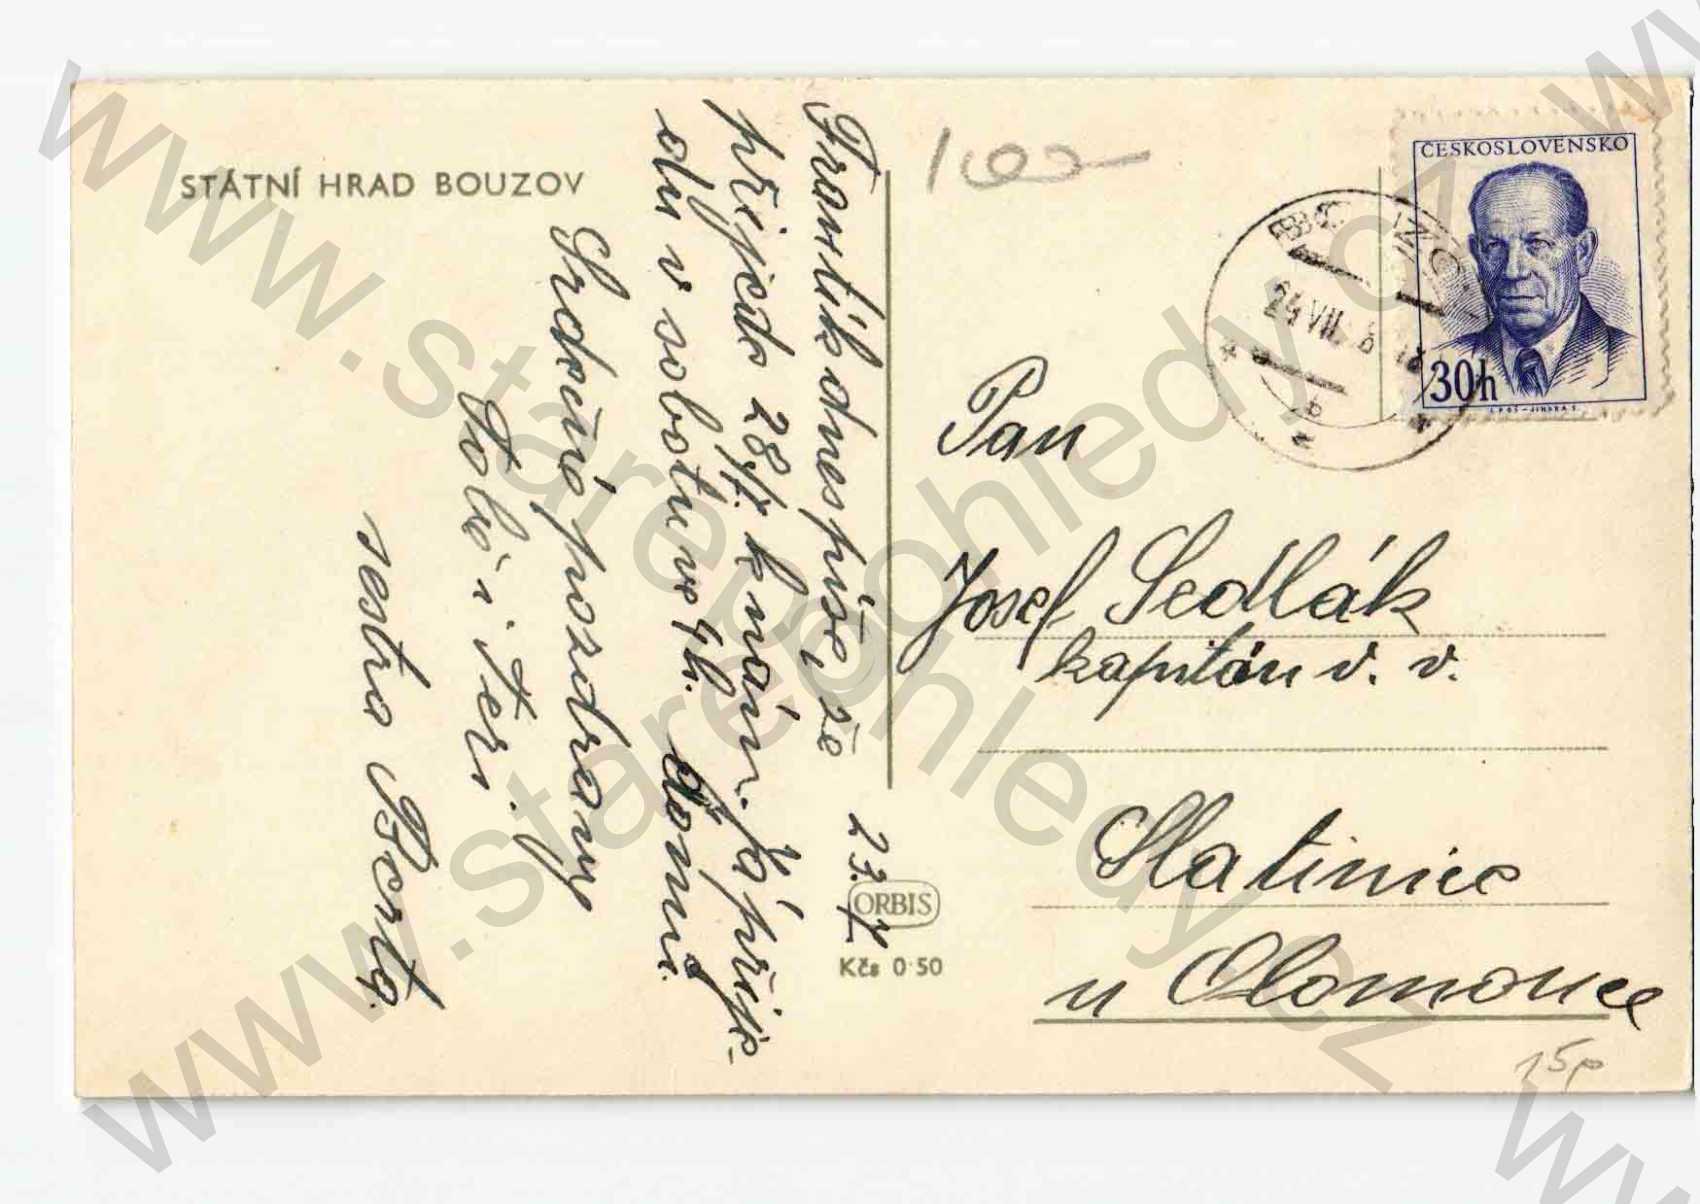 STÁTNÍ HRAD BOUZOV
František dnes píše, že
přijede 28/7. k nám. Já přije-
du v sobotu ve 4h. domů.
Srdečné pozdravy
Tobě i Feri.
sestra Berta.
23. 7.
ORBIS
Kčs 0·50
100
ČESKOSLOVENSKO
30h
Pan
Josef Sedlák
kapitán v. v.
Slatinice
u Olomouce
15p
www.starepohledy.cz
www.starepohledy.cz